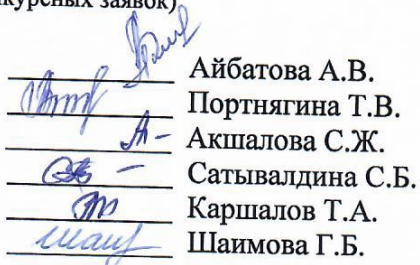 курсных заявок)
Айбатова А.В.
Портнягина Т.В.
Акшалова С.Ж.
Сатывалдина С.Б.
Каршалов Т.А.
Шаимова Г.Б.